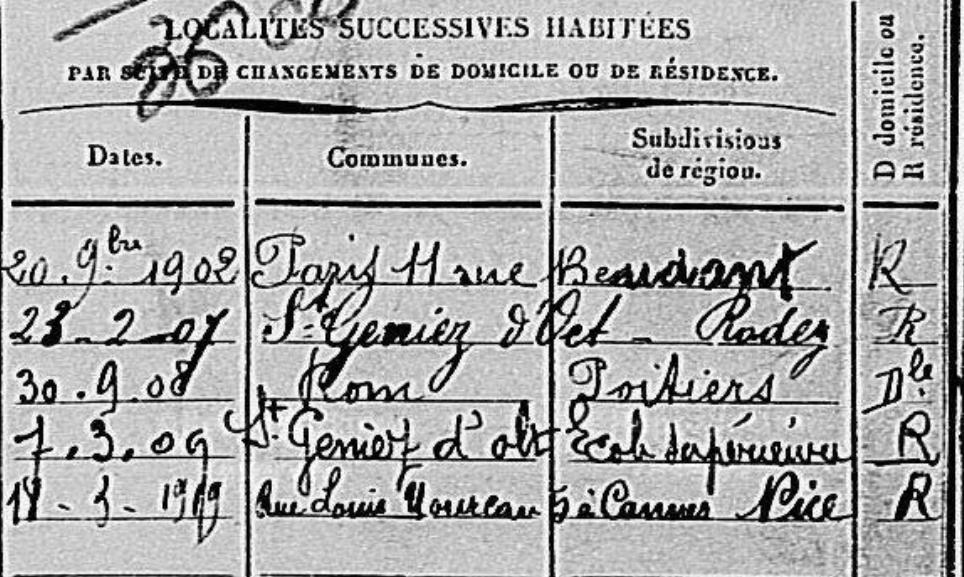 LOCALITÉS SUCCESSIVES HABITÉES
PAR SUITE DE CHANGEMENTS DE DOMICILE OU DE RÉSIDENCE.
D domicile ou
R résidence.
Dates. Communes. Subdivisions
de région.
20. 9bre 1902 Paris 11 rue Beaudant R
23-2-07 St Geniez d'Olt - Rodez R
30.9.08 Rom Poitiers Dle
7.3.09 St Geniez d'olt Ecole supérieure R
3 - 1919 Rue Louis 5 à Cannes Nice R